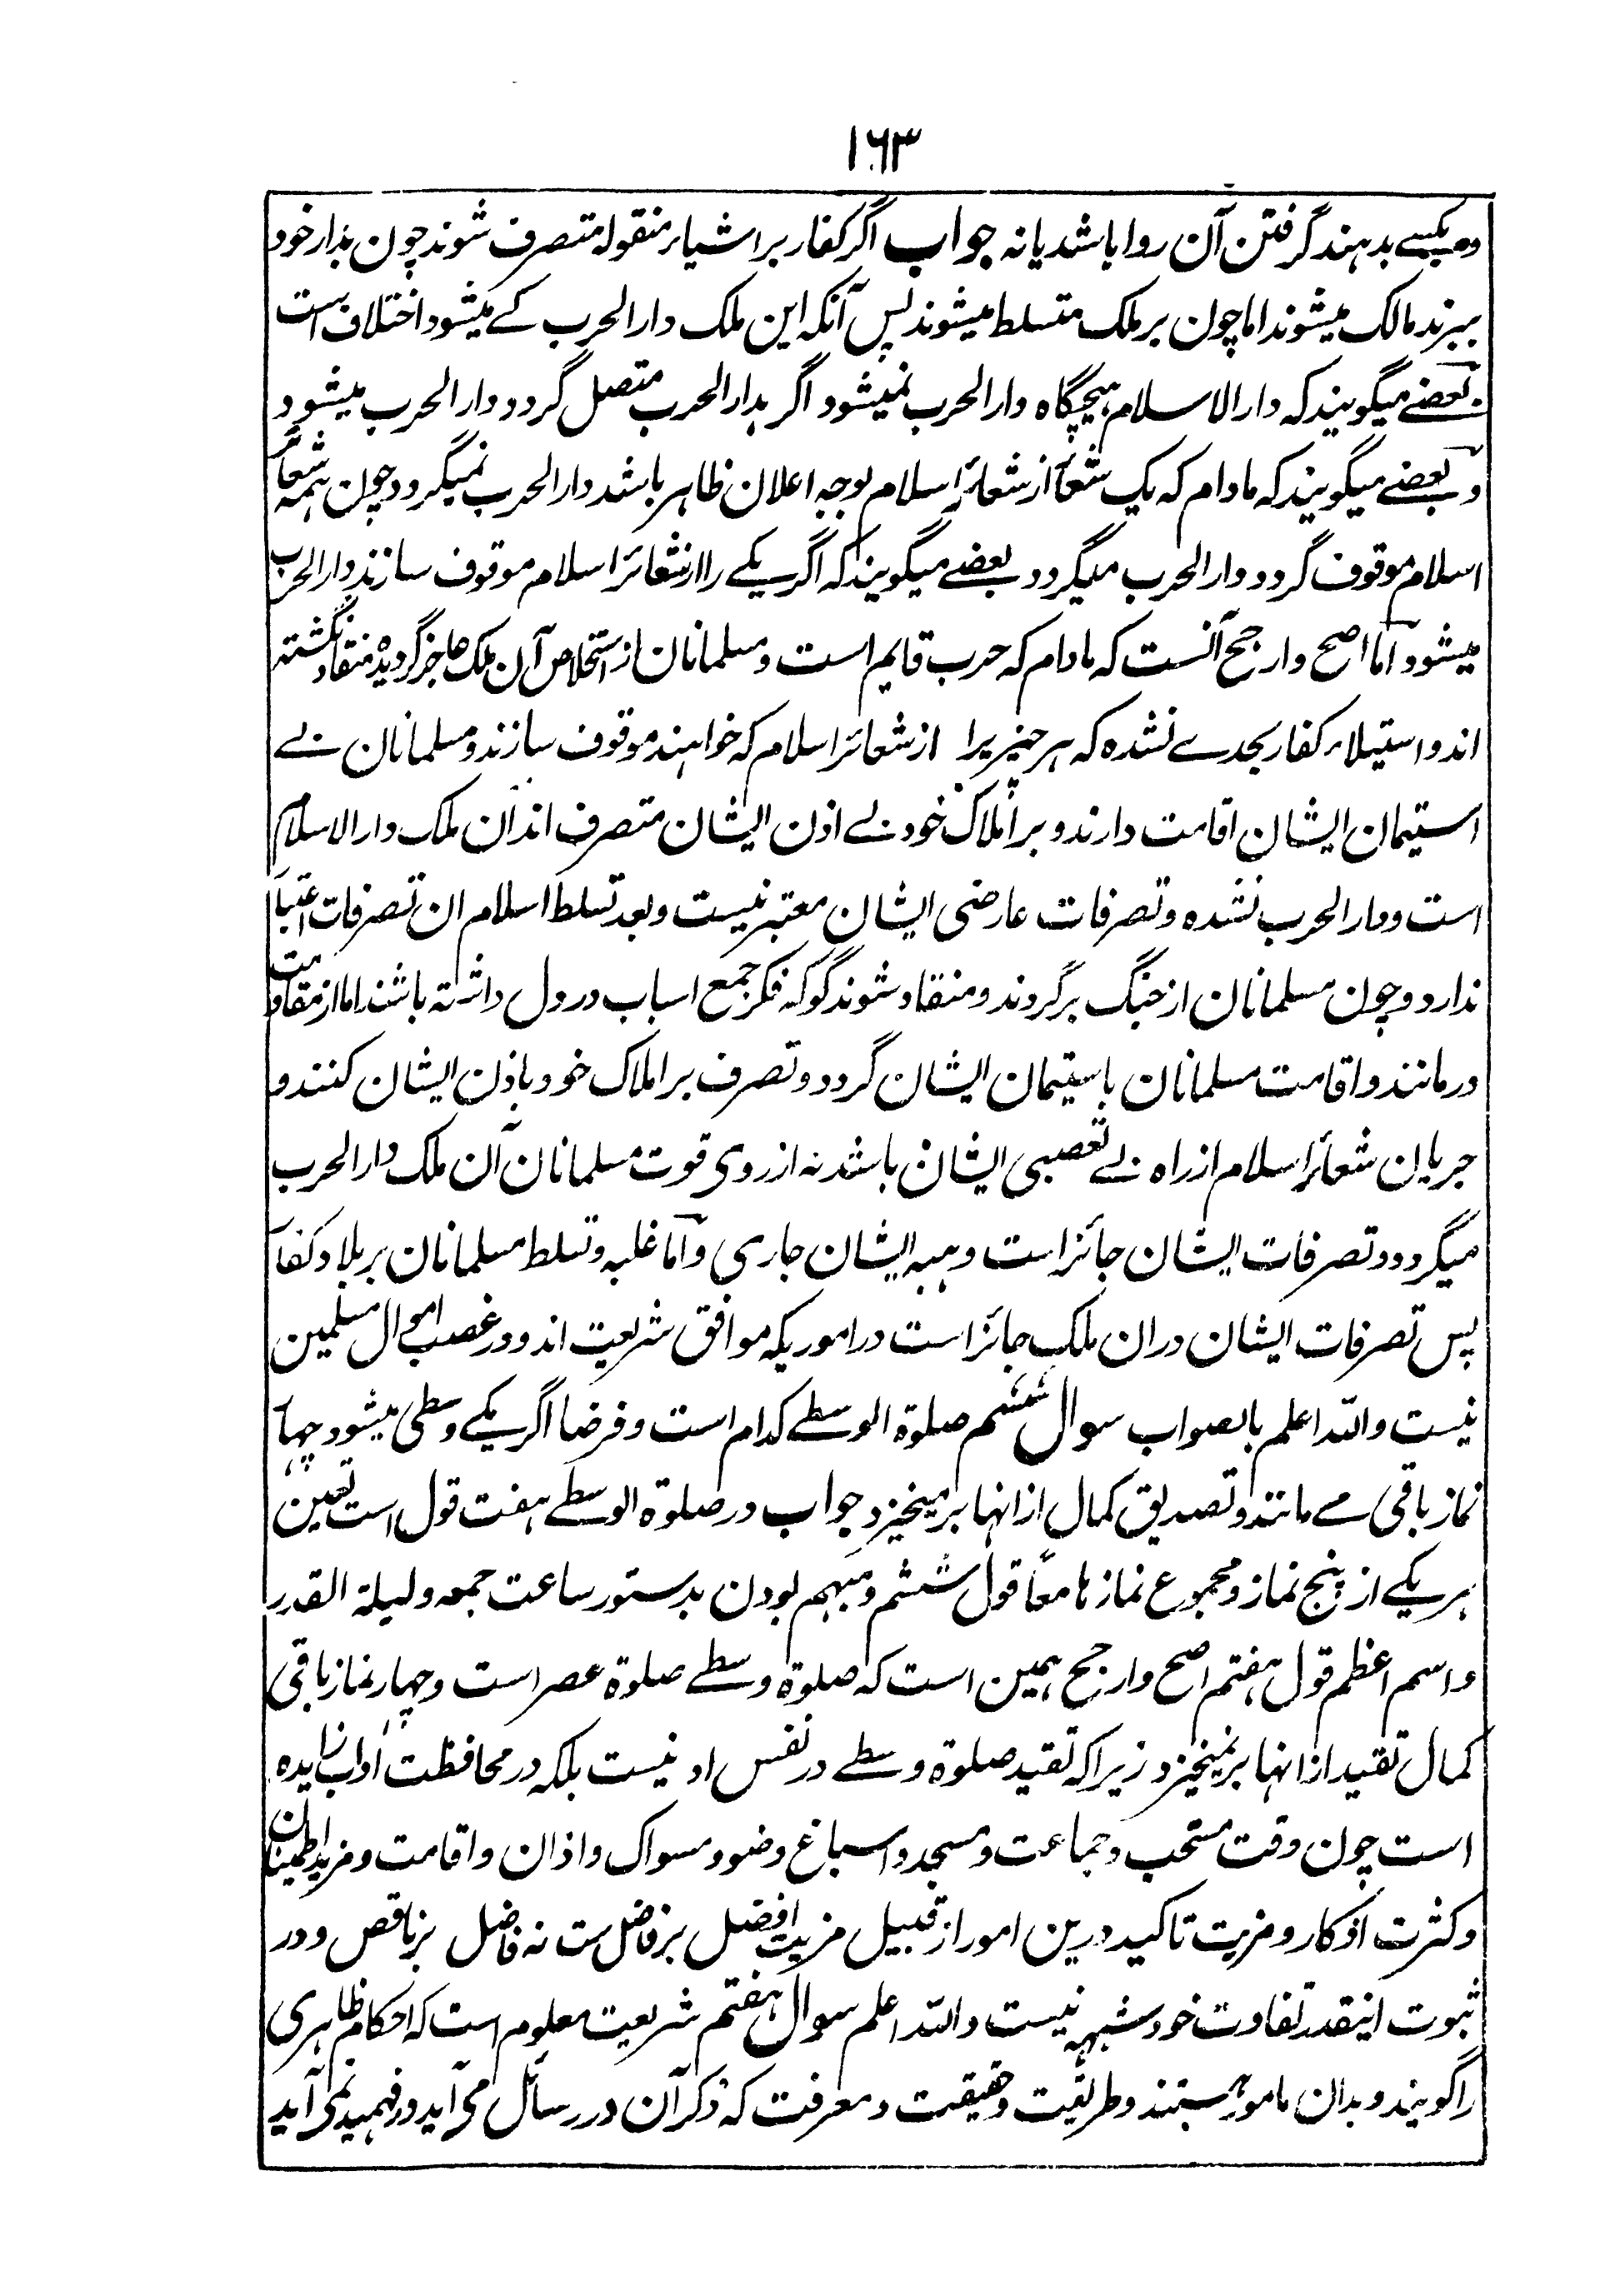 ۱۶۳
وهبکسے بدہند گرفتن آن روا باشد یا نہ جواب اگر کفار بر اشیاء منقولہ متصرف شوند چون بدار خود
ببرند مالک میشوند اما چون بر ملک متسلط میشوند پس آنکہ این ملک دار الحرب کے میشود اختلاف است
بعضے میگویند کہ دار الاسلام ہیچگاہ دار الحرب نمیشود اگر بدار الحرب متصل گردد دار الحرب میشود
و بعضے میگویند کہ مادام کہ یک شعار از شعائر اسلام بوجہ اعلان ظاہر باشد دار الحرب نمیگردد چون ہمہ شعائر
اسلام موقوف گردد دار الحرب میگردد بعضے میگویند کہ اگر یکے را از شعائر اسلام موقوف سازند دار الحرب
میشود اما اصح وارجح آنست کہ مادام کہ حرب قایم است و مسلمانان از استخلاص آن ملک عاجز گردیدہ منقاد نگشتہ
اند و استیلاء کفار بحدے نشدہ کہ ہر چیزیرا از شعائر اسلام کہ خواہند موقوف سازند و مسلمانان بے
استیمان ایشان اقامت دارند و بر املاک خود بے اذن ایشان متصرف اند آن ملک دار الاسلام
است و دار الحرب نشدہ و تصرفات عارضی ایشان معتبر نیست و بعد تسلط اسلام ان تصرفات اعتبار
ندارد و چون مسلمانان از جنگ برگردند و منقاد شوند گو کہ فکر جمع اسباب در دل داشتہ باشند اما از مقاومت
درمانند و اقامت مسلمانان باستیمان ایشان گردد و تصرف بر املاک خود باذن ایشان کنند و
جریان شعائر اسلام از راہ بے تعصبی ایشان باشد نہ از روی قوت مسلمانان آن ملک دار الحرب
میگردد و تصرفات ایشان جائز است و ہبہ ایشان جاری و اما غلبہ و تسلط مسلمانان بر بلاد کفار
پس تصرفات ایشان دران ملک جائز است در امور یکہ موافق شریعت اند و در غصب اموال مسلمین
نیست واللہ اعلم بالصواب سوال ششم صلوة الوسطے کدام است و فرضا اگر یکے وسطی میشود چہار
نماز باقی مے مانند و تصدیق کمال از انہا برمیخیزد جواب در صلوة الوسطے ہفت قول است تعین
ہر یکے از پنج نماز و مجموع نماز ہا معاً قول ششم و مبہم بودن بدستور ساعت جمعہ و لیلة القدر
و اسم اعظم قول ہفتم اصح وارجح ہمین است کہ صلوة وسطے صلوة عصر است و چہار نماز باقی
کمال تقید از انہا برنمیخیزد زیرا کہ تقید صلوة وسطے در نفس او نیست بلکہ در محافظت آداب زایدہ
است چون وقت مستحب و جماعت و مسجد و اسباغ وضو و مسواک و اذان و اقامت و مزید اطمینان
و کثرت اذکار و مزیت تاکید درین امور از قبیل مزیت افضل بر فاضل ست نہ فاضل بر ناقص و در
ثبوت اینقدر تفاوت خود شبہہ نیست واللہ اعلم سوال ہفتم شریعت معلوم است کہ احکام ظاہری
را گویند و بدان مامور ہستند و طریقت و حقیقت و معرفت کہ ذکر آن در رسائل می آید و فہمید نمی آید